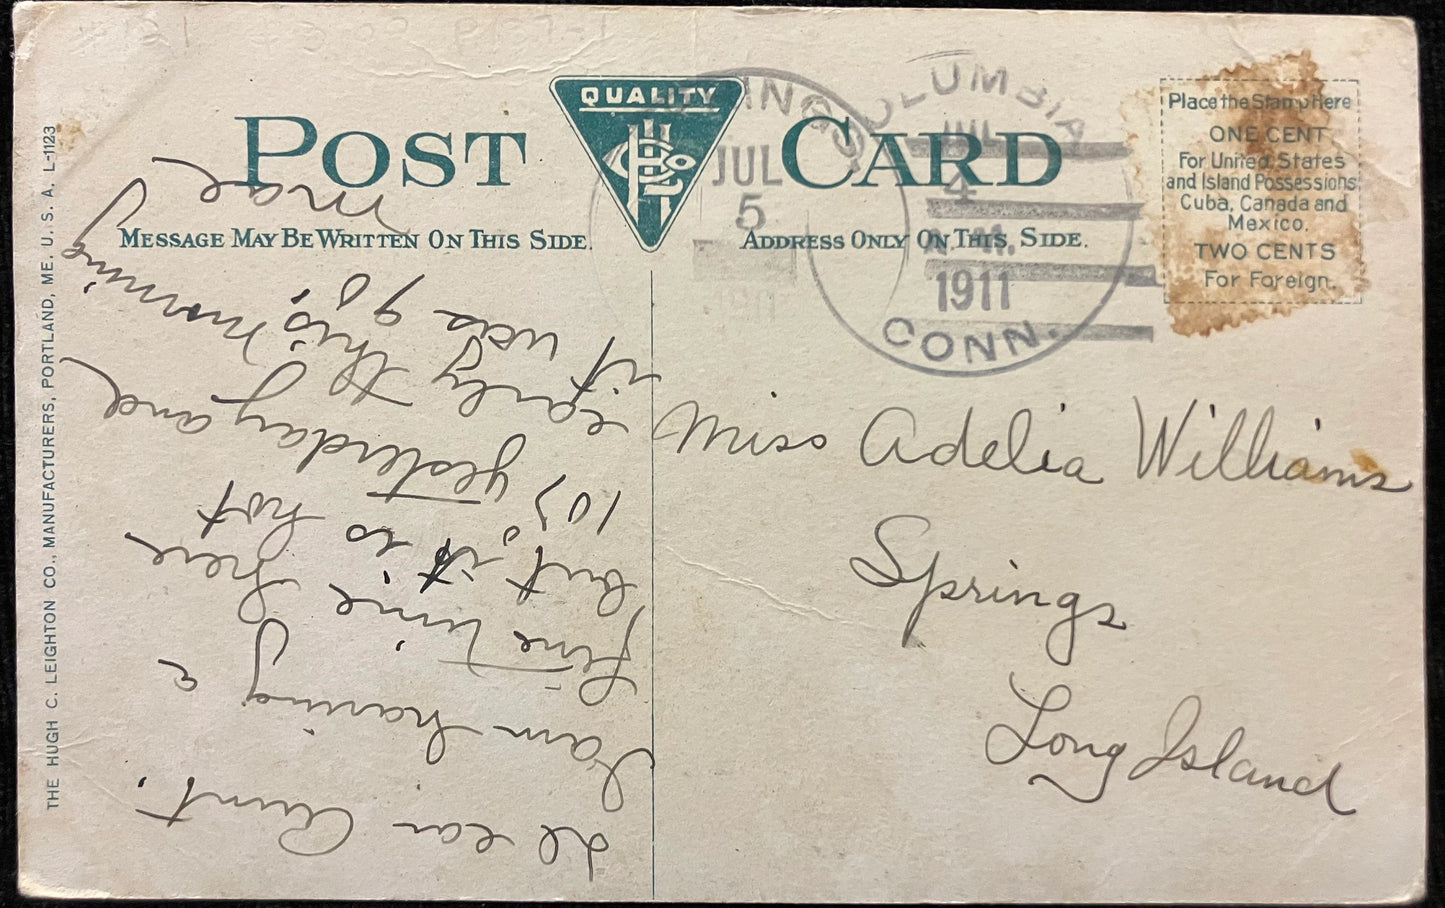 THE HUGH C. LEIGHTON CO., MANUFACTURERS, PORTLAND, ME. U. S. A. L-1123
POST CARD
QUALITY
MESSAGE MAY BE WRITTEN ON THIS SIDE.
ADDRESS ONLY ON THIS SIDE.
Place the Stamp Here
ONE CENT
For United States
and Island Possessions
Cuba, Canada and
Mexico.
TWO CENTS
For Foreign.
JUL
5
COLUMBIA
JUL
4
1911
CONN.
Dear Aunt.
I am having a
fine time here
but, it is hot
103 yesterday and
early this morning
it was 90.
Mae
Miss Adelia Williams
Springs
Long Island